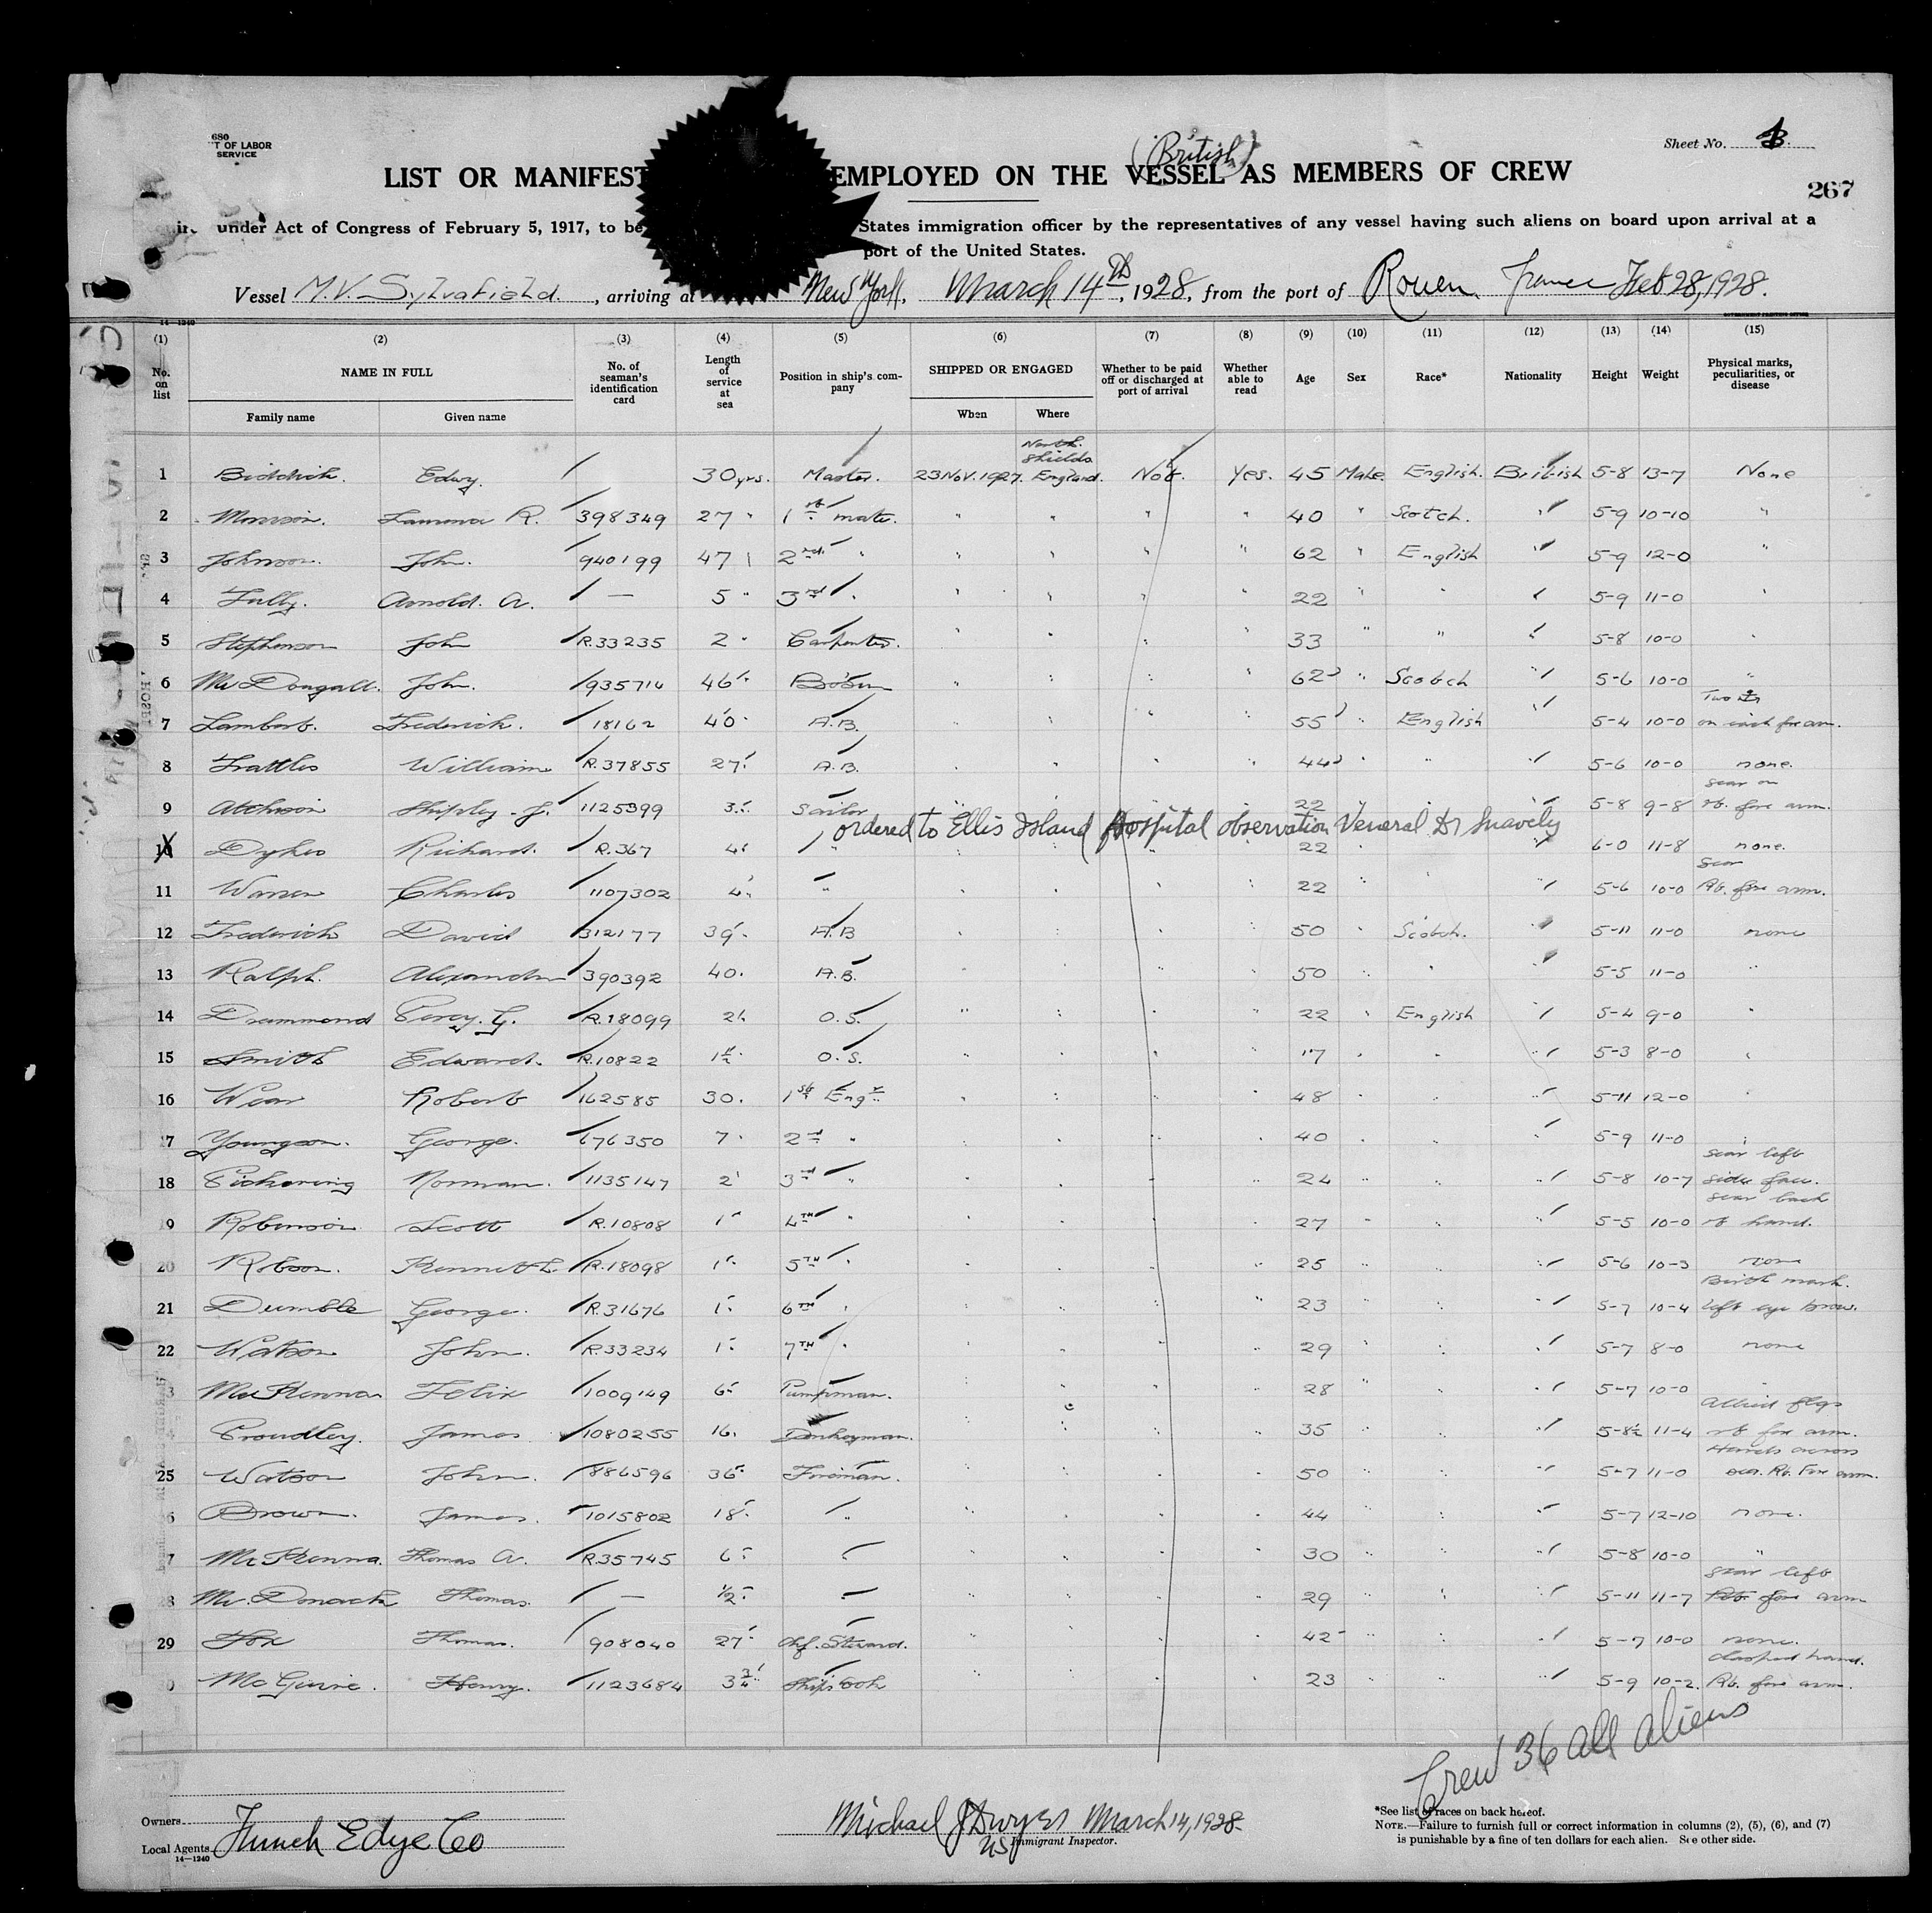 680
T OF LABOR
SERVICE
Sheet No.
(British)
LIST OR MANIFEST EMPLOYED ON THE VESSEL AS MEMBERS OF CREW
267
under Act of Congress of February 5, 1917, to be States immigration officer by the representatives of any vessel having such aliens on board upon arrival at a
port of the United States.
Vessel M.V. Sylvafield, arriving at New York, March 14th, 1928, from the port of Rouen France Feb 28, 1928.
14—1240
(1) (2) (3) (4) (5) (6) (7) (8) (9) (10) (11) (12) (13) (14) (15)
No. on list NAME IN FULL No. of seaman's identification card Length of service at sea Position in ship's company SHIPPED OR ENGAGED Whether to be paid off or discharged at port of arrival Whether able to read Age Sex Race* Nationality Height Weight Physical marks, peculiarities, or disease
Family name Given name When Where
North Shields
1 Biddick. Edwy. 30 yrs. Master. 23 Nov. 1927. England. Not. Yes. 45 Male English. British 5-8 13-7 None
2 Morrison. R. 398349 27 " 1st mate. " " " " 40 " Scotch. " 5-9 10-10 "
3 Johnson. John. 940199 47 2nd " " " " " 62 " English " 5-9 12-0 "
4 Tully. Arnold. A. — 5 " 3rd " " " " " 22 " " " 5-9 11-0 "
5 Stephenson John R.33235 2 " Carpenter. " " " " 33 " " " 5-8 10-0 "
6 McDougall. John. 935714 46 " Bosun " " " " 62 " Scotch " 5-6 10-0 "
Two
7 Lambert. Frederick. 18162 40 " A.B. " " " " 55 " English " 5-4 10-0 on each fore arm.
8 Trattles William R.37855 27 " A.B. " " " " 44 " " " 5-6 10-0 none.
scar on
9 Atchison Shipley J. 1125399 3 " Sailor " " " " 22 " " " 5-8 9-8 rt. fore arm.
ordered to Ellis Island Hospital observation Veneral Dr Snavely
10 Dykes Richard. R.367 4 " " " " " " 22 " " " 6-0 11-8 none.
Scar
11 Warren Charles 1107302 4 " " " " " " 22 " " " 5-6 10-0 Rt. fore arm.
12 Frederick David 312177 39 " A.B " " " " 50 " Scotch. " 5-11 11-0 none
13 Ralph. Alexander 390392 40 " A.B. " " " " 50 " " " 5-5 11-0 "
14 Drummond Percy. G. R.18099 2 " O.S. " " " " 22 " English " 5-4 9-0 "
15 Smith Edward. R.10822 1½ " O.S. " " " " 17 " " " 5-3 8-0 "
16 Wear Robert 162585 30 " 1st Engr " " " " 48 " " " 5-11 12-0 "
17 Youngson. George. 676350 7 " 2nd " " " " " 40 " " " 5-9 11-0 "
scar left
18 Pickering Norman. 1135147 2 " 3rd " " " " " 24 " " " 5-8 10-7 side face.
scar back
19 Robinson Scott R.10808 1 " 4TH " " " " " 27 " " " 5-5 10-0 rt hand.
20 Robson. Kenneth L. R.18098 1 " 5TH " " " " " 25 " " " 5-6 10-3 none
Birth mark.
21 Dumble George. R.31676 1 " 6TH " " " " " 23 " " " 5-7 10-4 left eye brow.
22 Watson John. R.33234 1 " 7TH " " " " " 29 " " " 5-7 8-0 none
3 McKenna Felix 1009149 6 " Pumpman. " " " " 28 " " " 5-7 10-0 "
Allied flags
Proudley. James 1080255 16 " Donkeyman. " " " " 35 " " " 5-8½ 11-4 rt fore arm.
Hands across
25 Watson John. 886596 36 " Fireman. " " " " 50 " " " 5-7 11-0 sea. Rt. Fore arm.
6 Brown. James. 1015802 18 " " " " " " 44 " " " 5-7 12-10 none.
7 McKenna. Thomas A. R35745 6 " " " " " " 30 " " " 5-8 10-0 "
scar left
8 Mc. Donach Thomas. — 1/2 " " " " " " 29 " " " 5-11 11-7 Rt. fore arm
29 Fox Thomas. 908040 27 " Chf. Steward. " " " " 42 " " " 5-7 10-0 none.
clasped hand.
0 McGuire. Henry. 1123684 3¾ " Ships Cook " " " " 23 " " " 5-9 10-2. Rt. fore arm.
Crew 36 all aliens
Owners
Local Agents Funch Edye Co
14—1240
Michael J Dwyer March 14, 1928.
US Immigrant Inspector.
*See list of races on back hereof.
NOTE.—Failure to furnish full or correct information in columns (2), (5), (6), and (7)
is punishable by a fine of ten dollars for each alien. See other side.